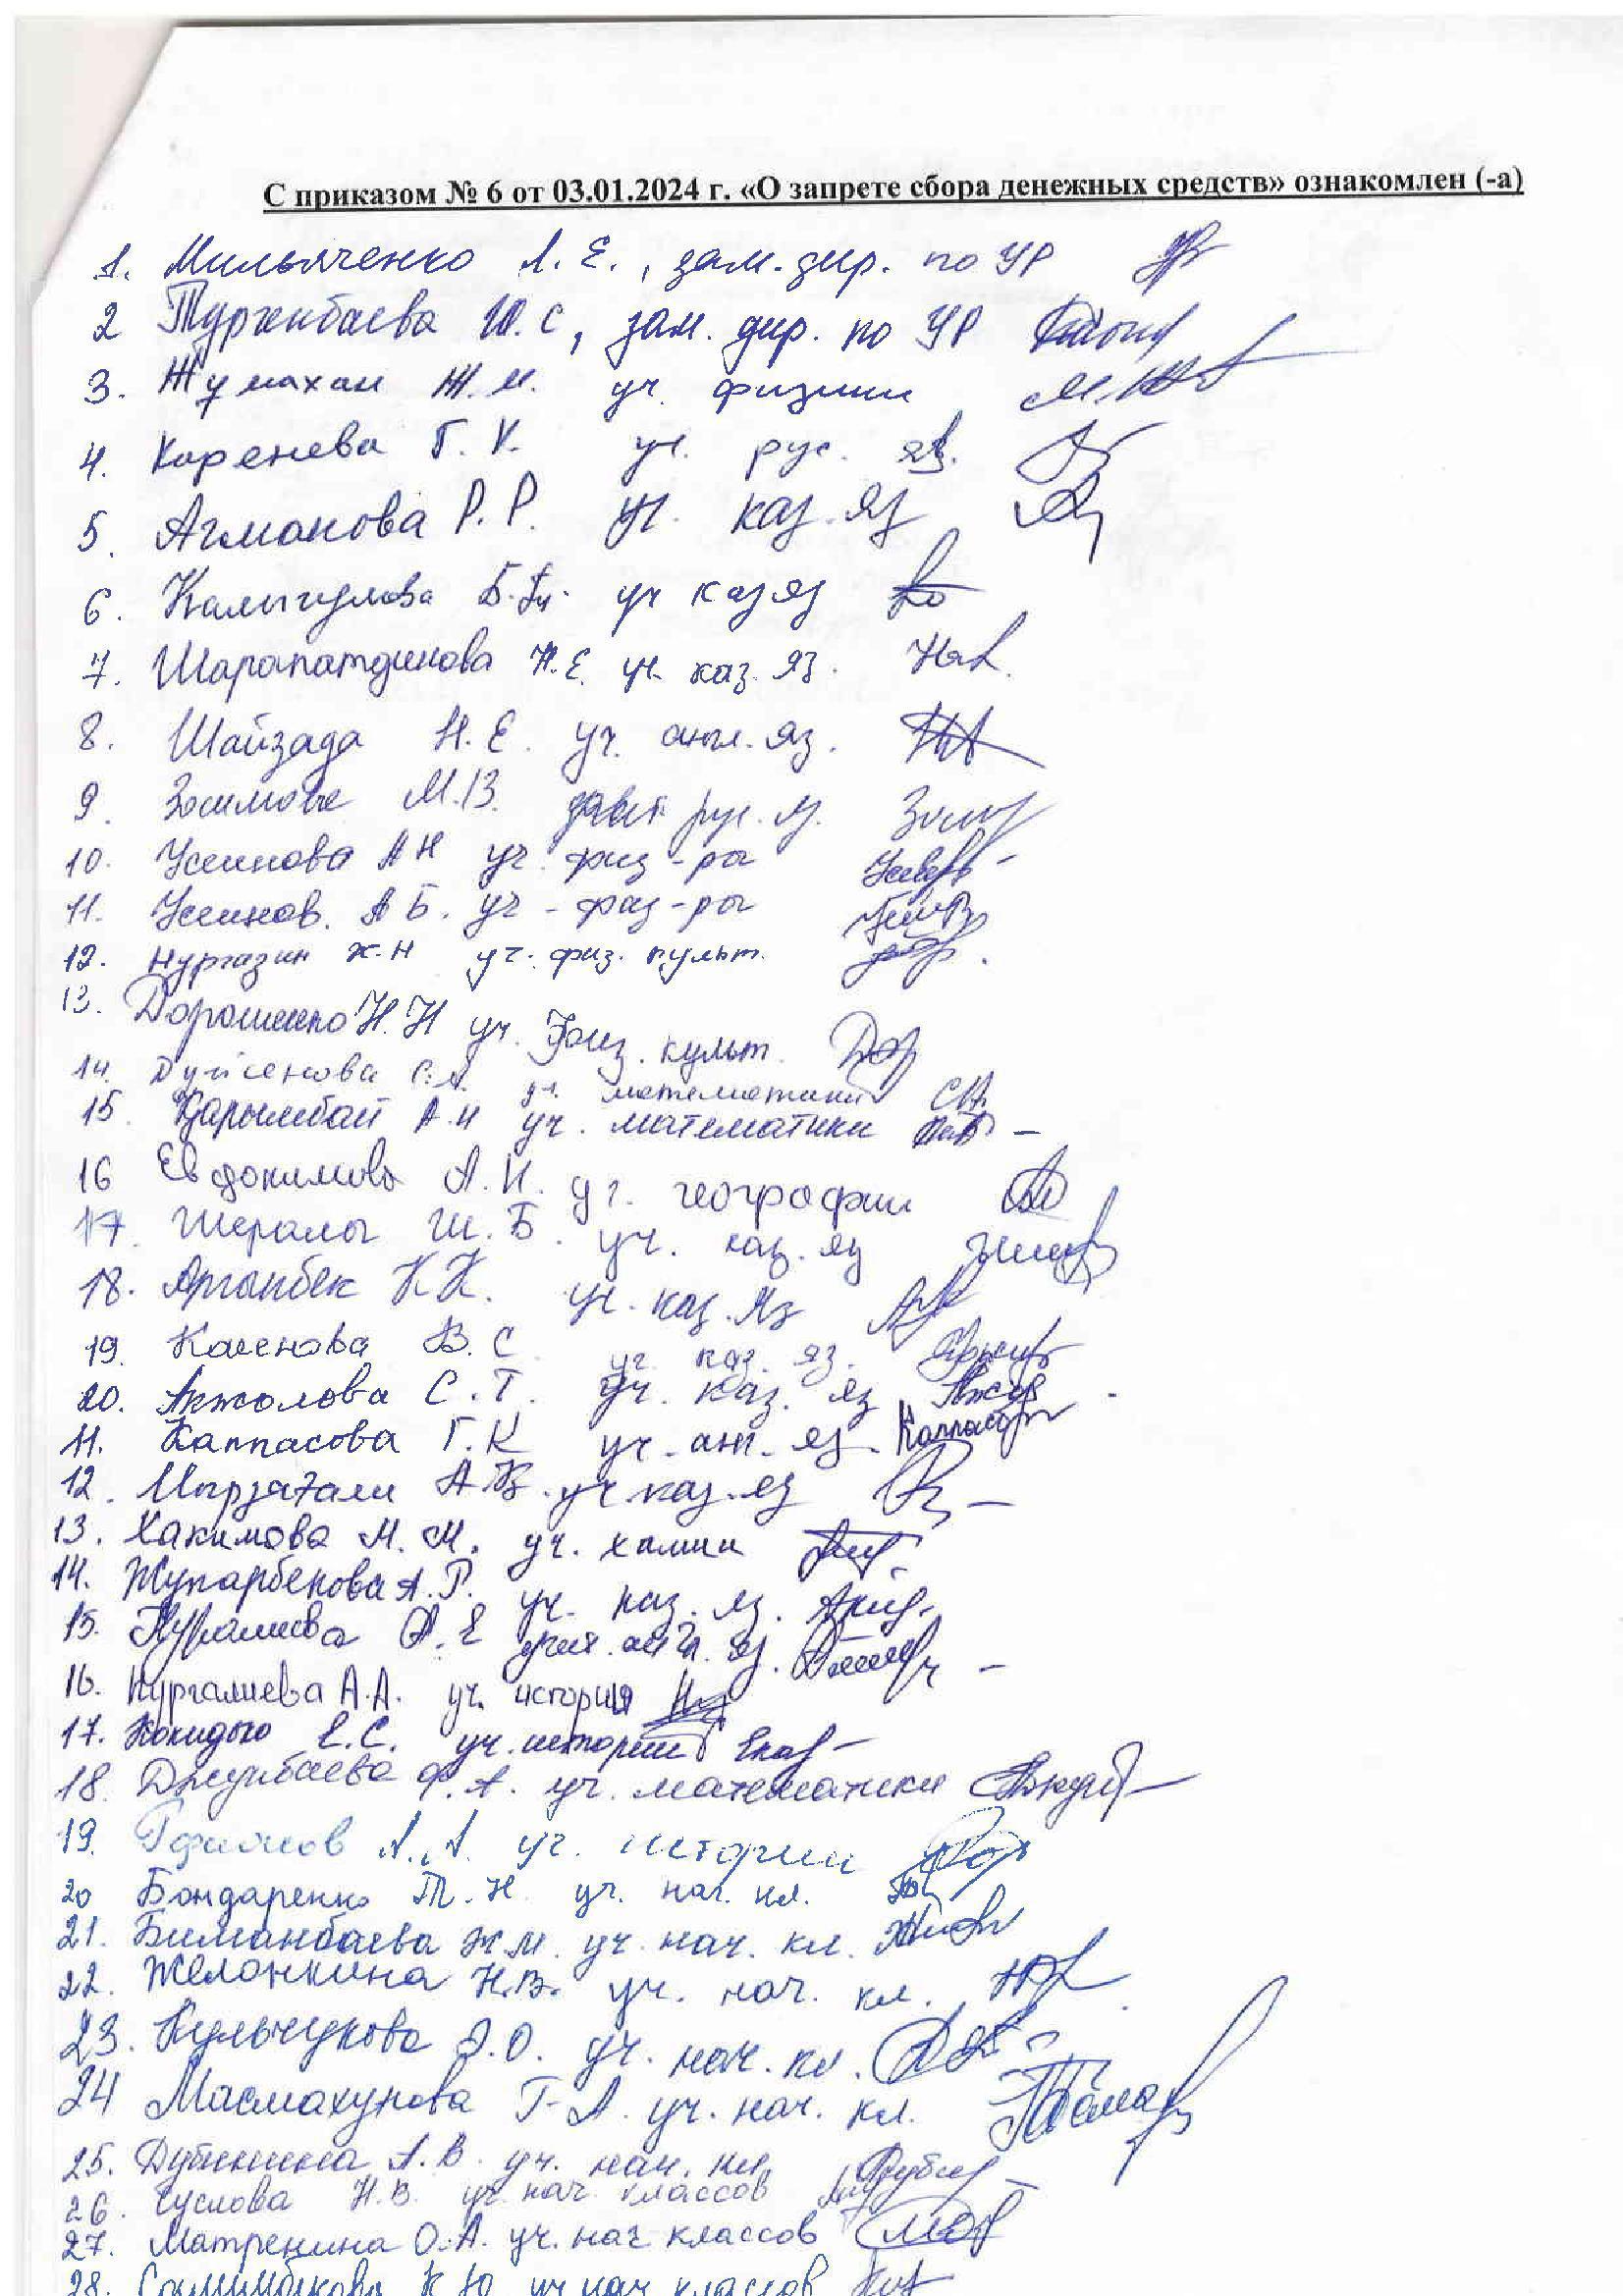 С приказом № 6 от 03.01.2024 г. «О запрете сбора денежных средств» ознакомлен (-а)
1. Мильяченко А. Е., зам. дир. по УР
2 Турженбаева Ш. С, зам. дир. по УР
3. Жумахан Ж. М. уч. физики
4. Коренева Г. К. уч. рус. яз.
5. Агманова Р. Р. уч. каз. яз
6. Калыгулова Б. уч каз яз
7. Шарапатдинова Н. Е. уч. каз. яз.
8. Шайзада Н. Е. уч. англ. яз.
9. М. З. рус. яз.
10. Усинова А Н уч. физ-ры
11. Усинов. А Б. уч - физ-ры
12. Нургазин Ж. Н уч. физ. культ.
13. Дорошенко Н. Н уч. Физ. культ.
14. Дуйсенова С. А. уч. математики
15. Қарымбай А. Н уч. математики
16 Евдокимова А. И. уч. географии
17. Шералы Ш. Б. уч. каз. яз
18. Арғынбек К К. уч. каз. яз
19. Касенова В. С уч. каз. яз.
20. Акжолова С. Т. уч. каз. яз
11. Каппасова Г. К уч. анг. яз.
12. Мырзатали А Қ. уч каз. яз
13. Хакимова М. М. уч. химии
14. Жупарбекова А. Р. уч. каз. яз.
15. Нуралиева А. Е учит. англ. яз.
16. Нургалиева А. А. уч. история
17. Кокидько Е. С. уч. истории
18. Джунбаева Ф. А. уч. математики
19. А. А. уч. истории
20 Бондаренко Т. Н. уч. нач. кл.
21. Биманбаева Ж М. уч. нач. кл.
22. Желонкина Н. В. уч. нач. кл.
23. Кульчукова Э. О. уч. нач. кл.
24 Масмахунова Г-А. уч. нач. кл.
25. Дубинина А. В. уч. нач. кл.
26. Гуслова Н. В. уч. нач. классов
27. Матренина О. А. уч. нач классов
28. К Ю. уч нач классов